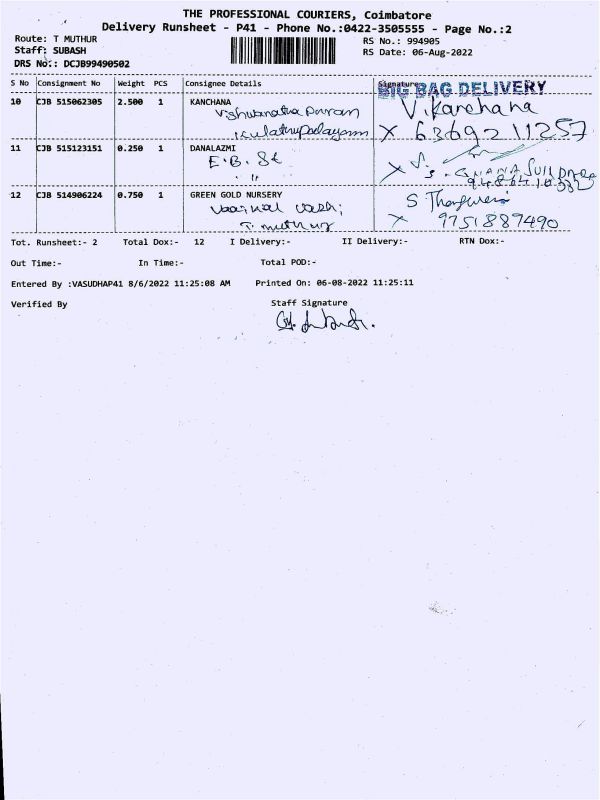 THE PROFESSIONAL COURIERS, Coimbatore
Delivery Runsheet - P41 - Phone No.:0422-3505555 - Page No.:2
Route: T MUTHUR
RS No.: 994905
Staff: SUBASH
RS Date: 06-Aug-2022
DRS No:: DCJB99490502
S No Consignment No Weight PCS Consignee Details Signature
BIG BAG DELIVERY
10 CJB 515062305 2.500 1 KANCHANA V. Kanchana
Kulathupalayam X 6369211257
11 CJB 515123151 0.250 1 DANALAZMI
E.B. St
" X
12 CJB 514906224 0.750 1 GREEN GOLD NURSERY S
T. muthur X 9751887490
Tot. Runsheet:- 2 Total Dox:- 12 I Delivery:- II Delivery:- RTN Dox:-
Out Time:- In Time:- Total POD:-
Entered By :VASUDHAP41 8/6/2022 11:25:08 AM Printed On: 06-08-2022 11:25:11
Verified By Staff Signature